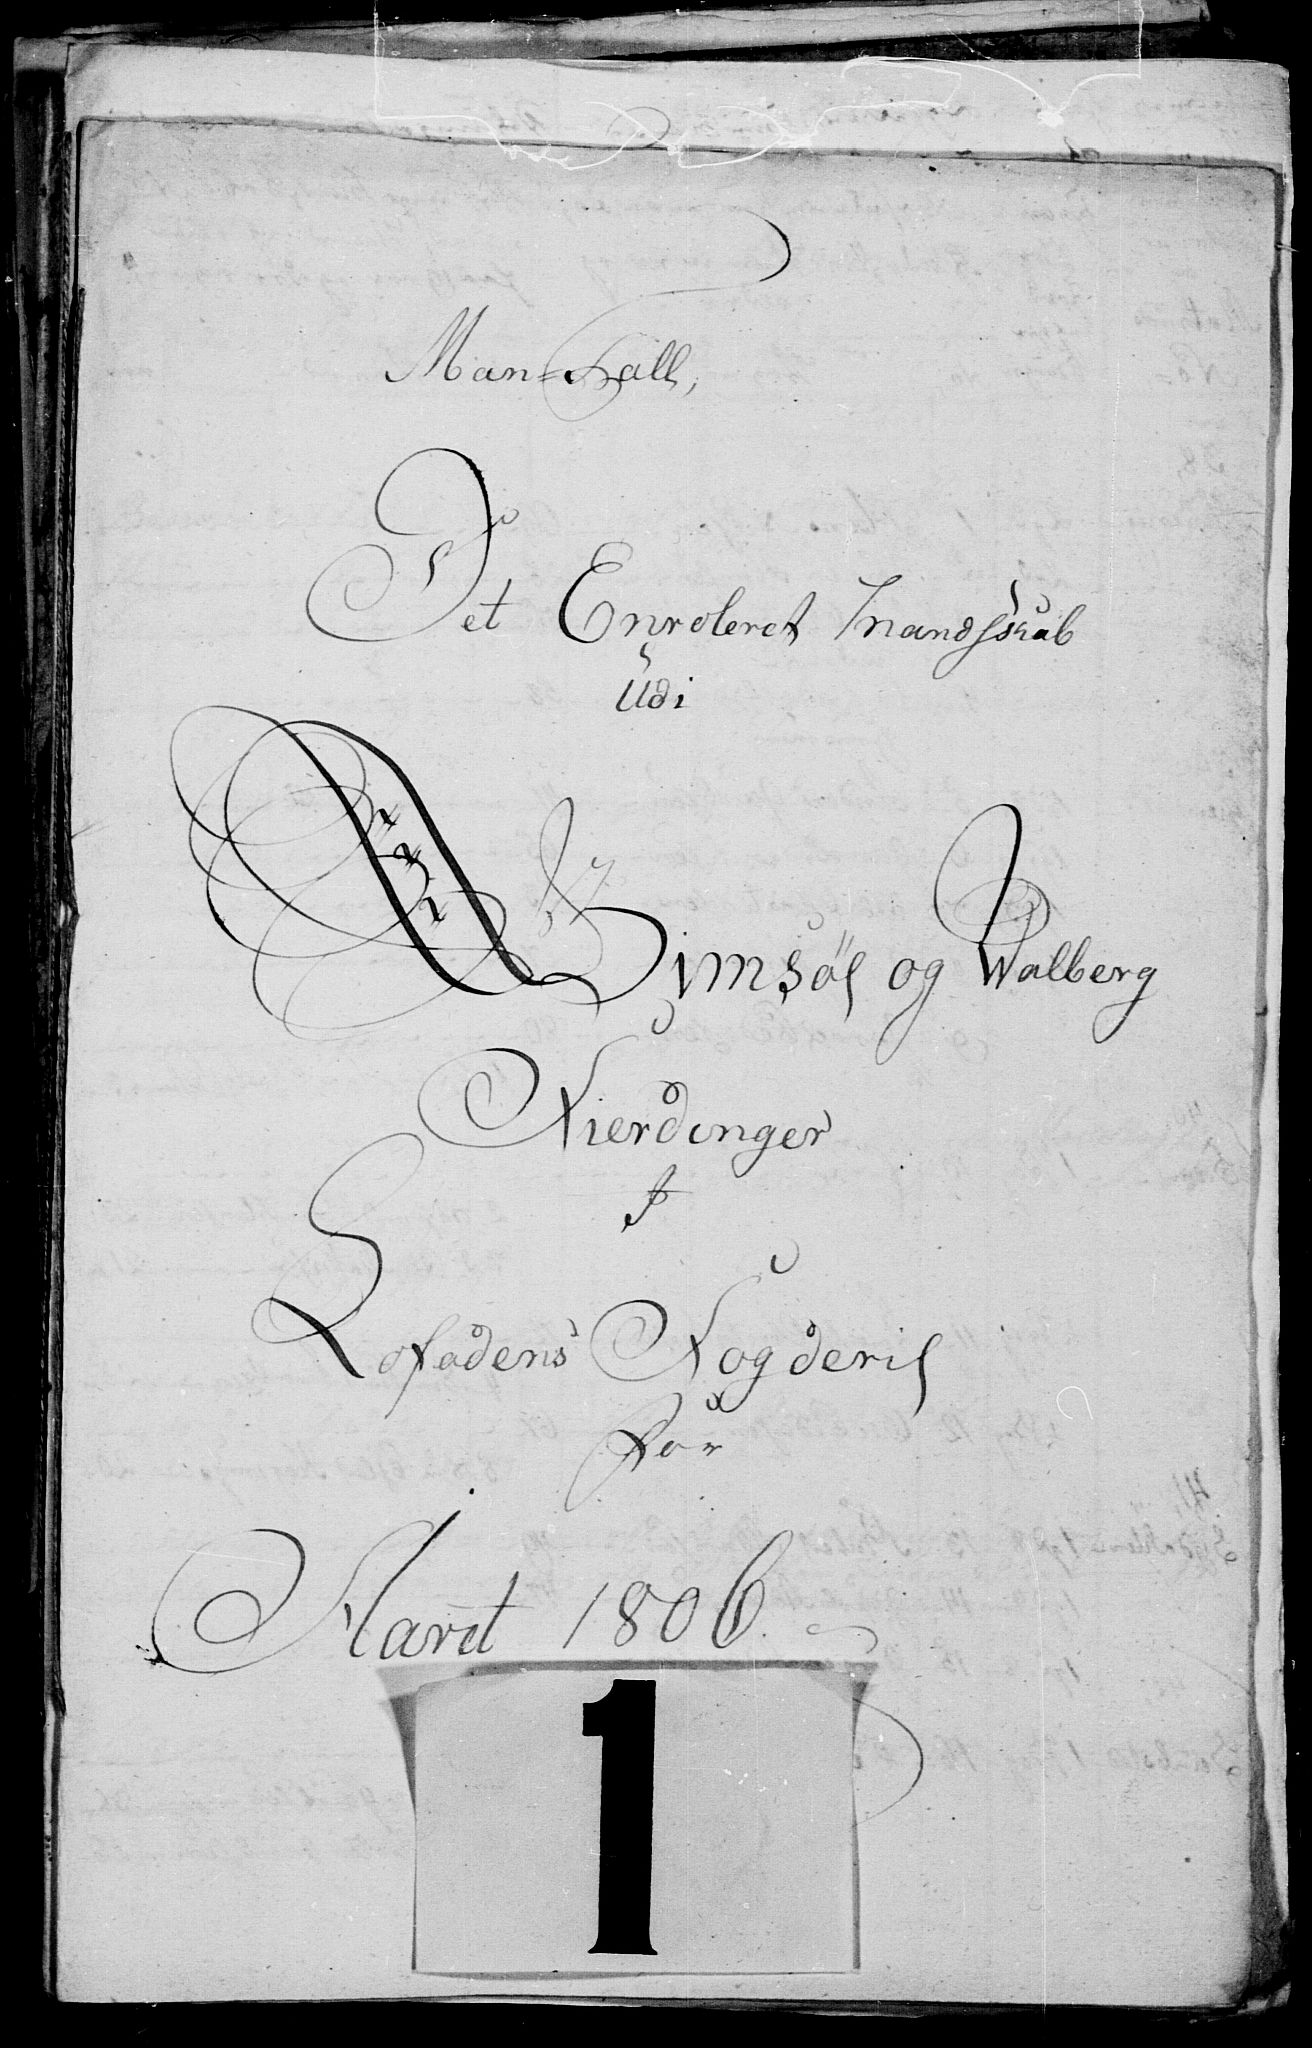 Man-Tall,
Det Enroleret Mandsskab
Udi
Gimsøe og Walberg
Fierdinger
I
Lofodens Fogderie
For
Aaret 1806.
1